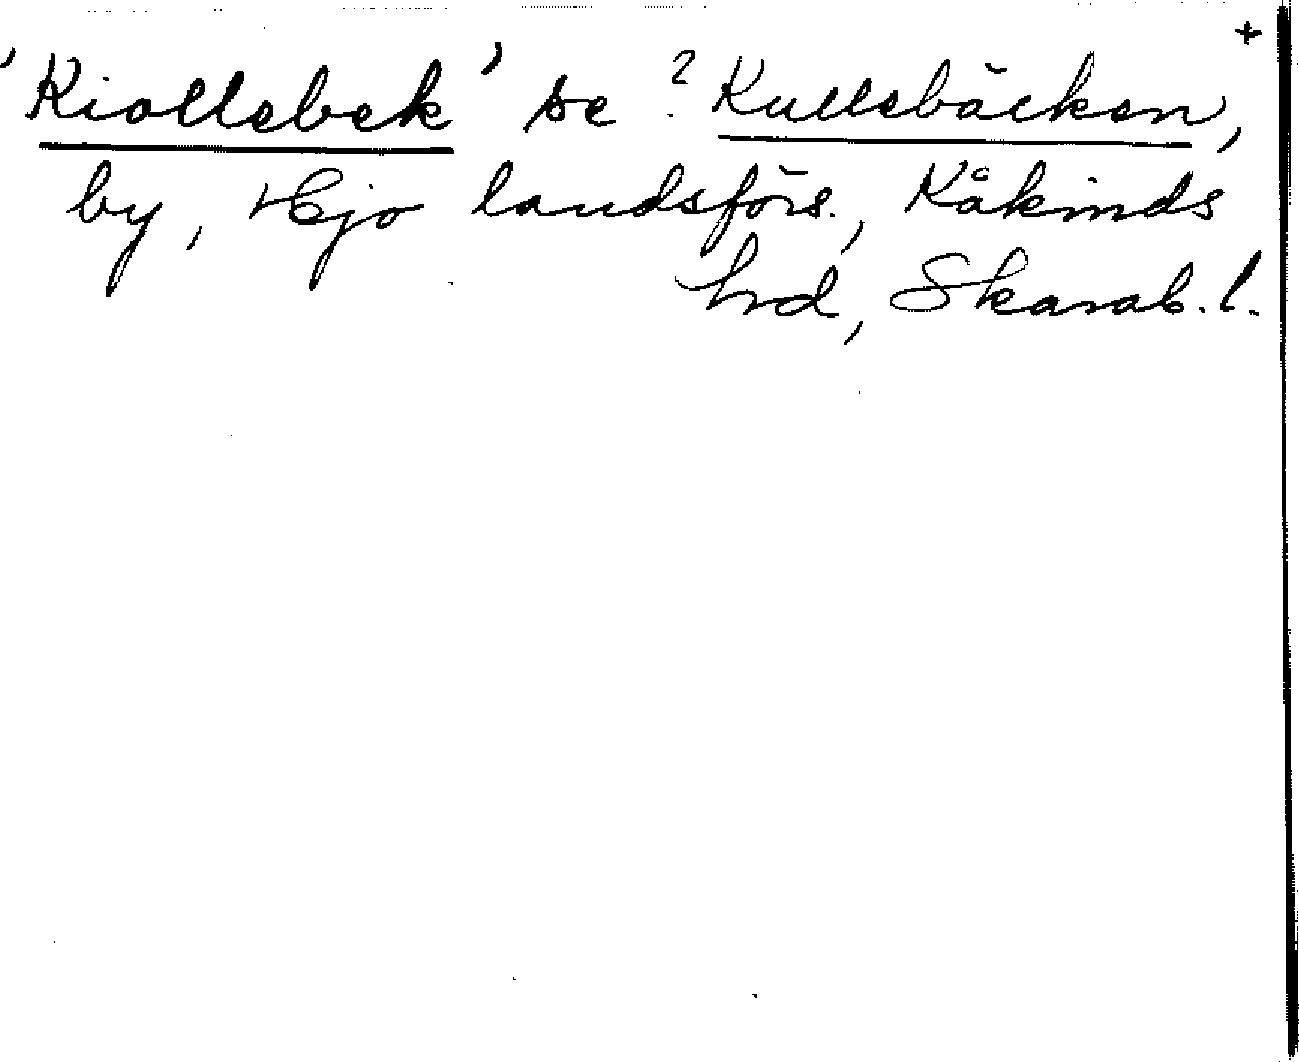 +
'Kiollebek' se ? Kullebäcken,
by, Hjo landsförs., Kåkinds
hrd, Skarab. l.